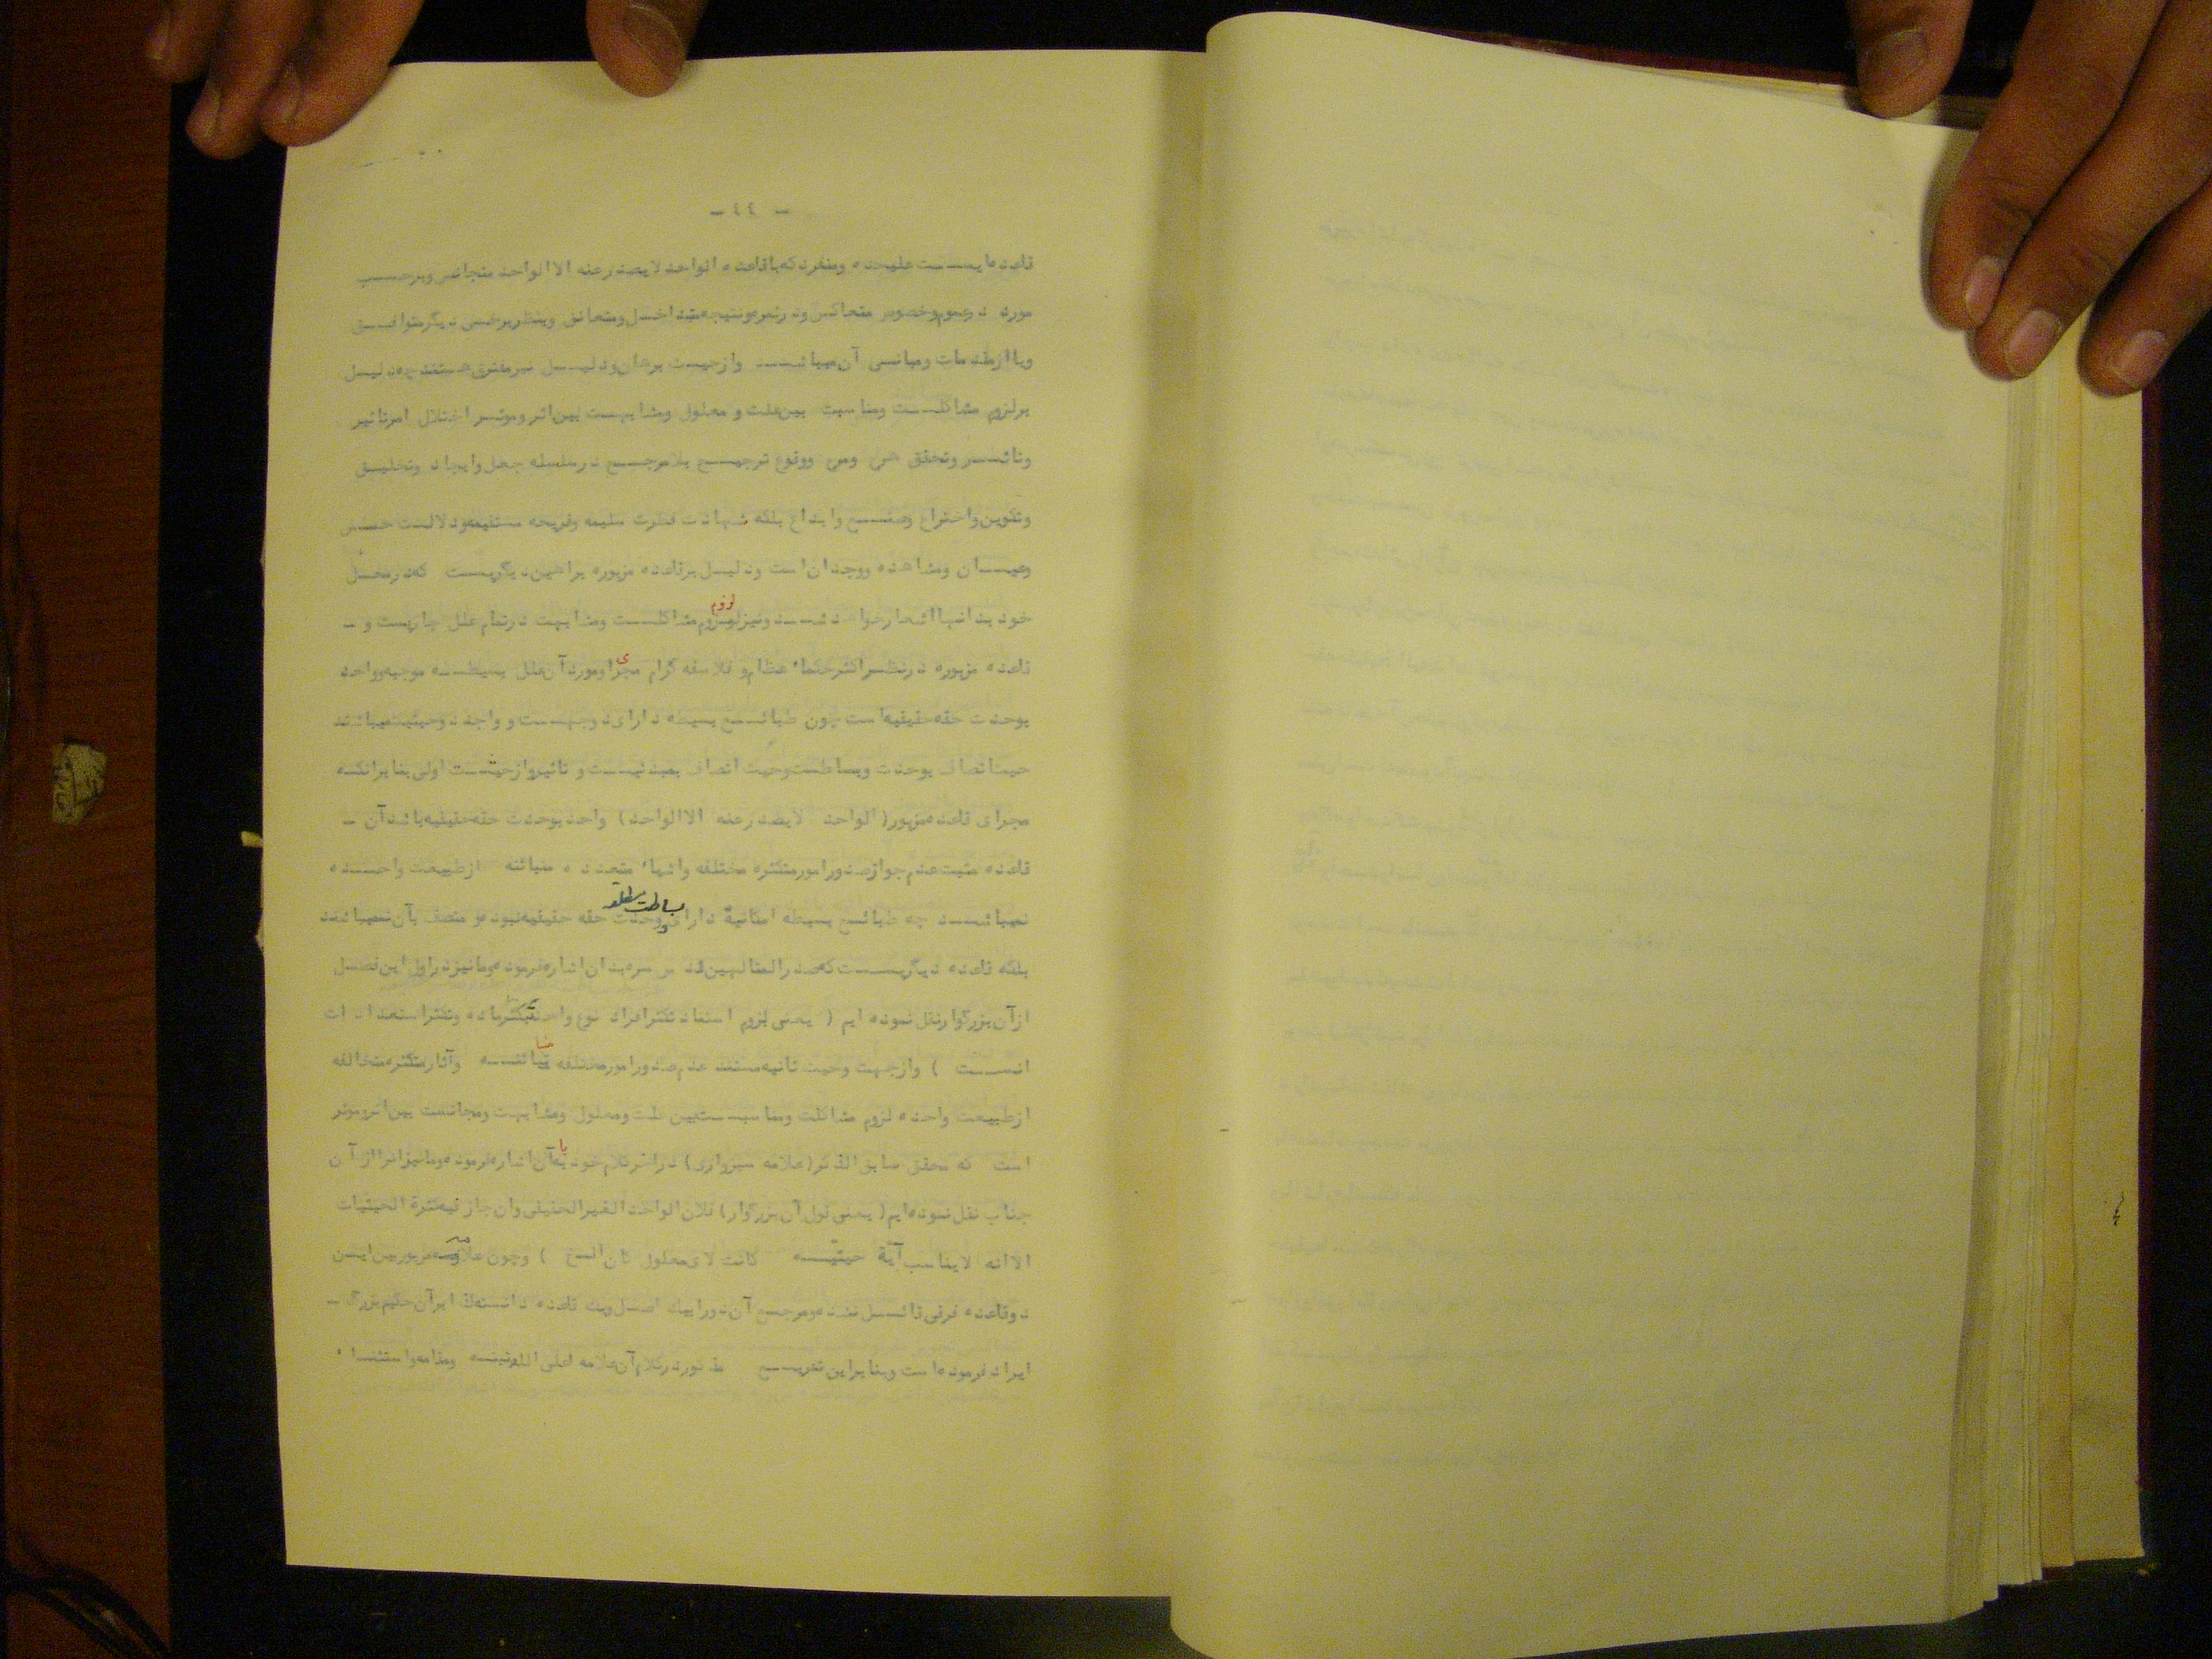 - ٤٤ -
قاعده ایست علیحده ومنفرد که باقاعده الواحد لایصدر عنه الا الواحد متجانس وبرحسب
مورد درعموم وخصوص متعاکس ودر ثمره ونتیجه متداخل ومتعانق وبنظر برخی دیگر متوافق
ویا از مقدمات ومبانی آن میباشد وازحیث برهان ودلیل نیز مفترق هستند چه دلیل
برلزوم مشاکلت ومناسبت بین علت و معلول ومشابهت بین اثر وموثر اختلال امر تاثیر
وتاثر وتحقق هی وهی ووقوع ترجیح بلامرجح در سلسله جعل وایجاد وتخلیق
وتکوین واختراع وصنع وابداع بلکه شهادت فطرت سلیمه وقریحه مستقیمه ودلالت حس
وعیان ومشاهده ووجدان است ودلیل برقاعده مزبوره براهین دیگریست که درمحل
خود بدانها اشعار خواهد شد ونیز لزوم مشاکلت ومشابهت درتمام علل جاریست و -
قاعده مزبوره درنظر اکثر حکماء عظام و فلاسفه گرام مجری ومورد آن علل بسیطه موجبه وواحد
بوحدت حقه حقیقیه است چون طبائع بسیطه دارای دوجهت و واجد دوحیثیت میباشند
حیث اتصاف بوحدت وبساطت وحیث اتصاف بمبدئیت و تاثیر وازحیثیت اولی بنابرانکه
مجرای قاعده مزبور (الواحد لایصدر عنه الا الواحد) واحد بوحدت حقه حقیقیه باشد آن -
قاعده مثبت عدم جواز صدور امور متکثره مختلفه واشیاء متعدده متبائنه ازطبیعت واحده
نمیباشد چه طبائع بسیطه امکانیه دارای بساطت مطلقه ووحدت حقه حقیقیه نبوده و متصف بآن نمیباشند
بلکه قاعده دیگریست که صدرالمتالهین قدس سره بدان اشاره فرموده ومانیز دراول این فصل
ازآن بزرگوار نقل نموده ایم ( یعنی لزوم استناد تکثر افراد نوع واحد بتکثر ماده وتکثر استعدادات
انست ) وازجهت وحیث ثانیه مستند عدم صدور امور مختلفه متبائنه وآثار متکثره متخالفه
ازطبیعت واحده لزوم مشاکلت ومناسبت بین علت ومعلول ومشابهت ومجانست بین اثر وموثر
است که محقق سابق الذکر (علامه سبزواری) دراخر کلام خود بآن اشاره فرموده ومانیز انرا ازآن
جناب نقل نموده ایم ( یعنی قول آن بزرگوار) فلان الواحد الغیر الحقیقی وان جاز فیه کثرة الحیثیات
الا انه لایناسب آیة حیثیة کانت لای معلول کان الخ ) وچون علامه مزبور بین این
دوقاعده فرقی قائل نشده ومرجع آن دورا بیک اصل ویک قاعده دانسته لذا برآن حکیم بزرگ -
ایراد فرموده است وبنابراین تفریع مذکور درکلام آن علامه اعلی الله رتبته ومقامه واستثناء